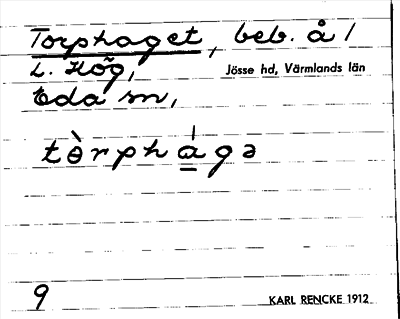 Torphaget, beb. å /
L. Hög, Jösse hd, Värmlands län
Eda sn,
tèrphagə
9 KARL RENCKE 1912